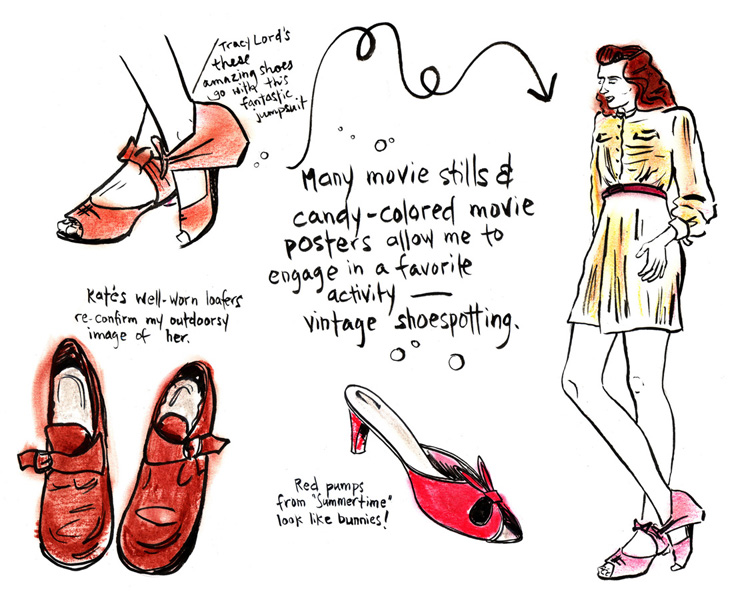 Tracy Lord's
these
amazing shoes
go with this
fantastic
jumpsuit
Many movie stills &
candy-colored movie
posters allow me to
engage in a favorite
activity —
vintage shoespotting.
Kate's well-worn loafers
re-confirm my outdoorsy
image of her.
Red pumps
from "Summertime"
look like bunnies!